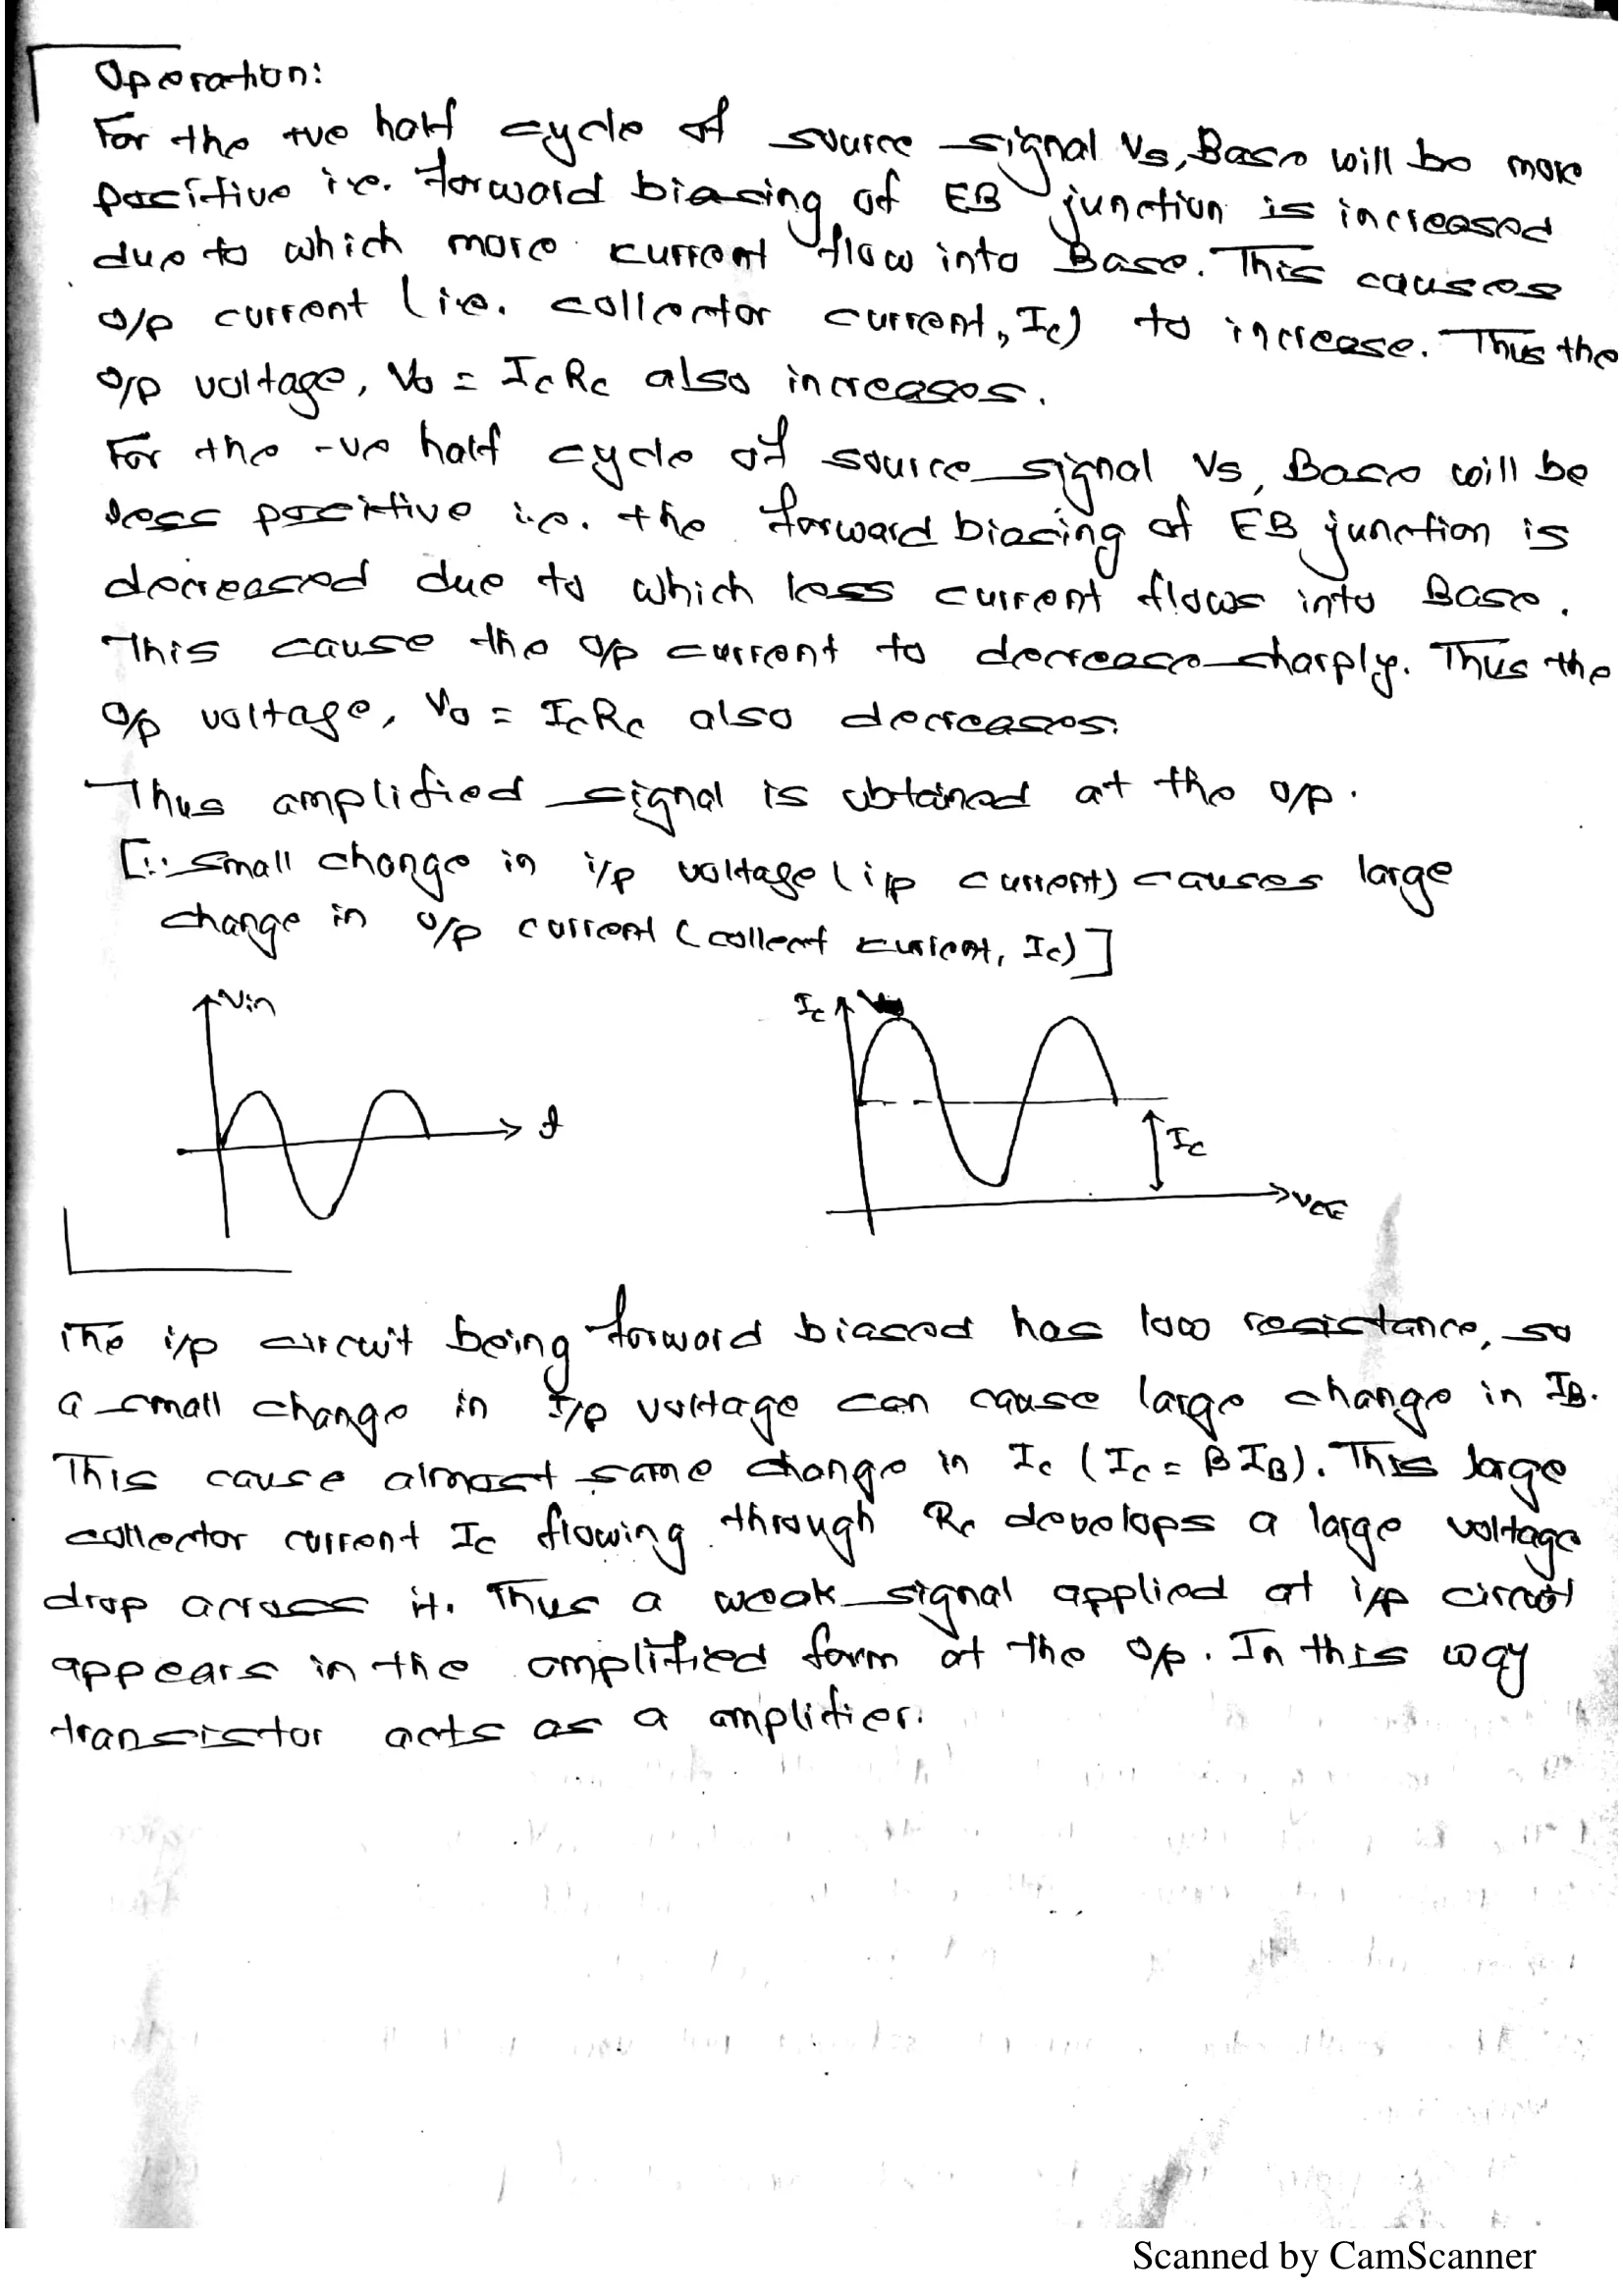 Operation:
For the +ve half cycle of source signal Vs, Base will be more
positive i.e. forward biasing of EB junction is increased
due to which more current flow into Base. This causes
o/p current (i.e. collector current, Ic) to increase. Thus the
o/p voltage, Vo = IcRc also increases.
For the -ve half cycle of source signal Vs, Base will be
less positive i.e. the forward biasing of EB junction is
decreased due to which less current flows into Base.
This cause the o/p current to decrease sharply. Thus the
o/p voltage, Vo = IcRc also decreases.
Thus amplified signal is obtained at the o/p.
[∵ small change in i/p voltage (i/p current) causes large
change in o/p current (collect current, Ic)]
Vin
Ic
t
Ic
VCE
The i/p circuit being forward biased has low resistance, so
a small change in I/p voltage can cause large change in IB.
This cause almost same change in Ic (Ic = βIB). This large
collector current Ic flowing through Rc develops a large voltage
drop across it. Thus a weak signal applied at i/p circuit
appears in the amplified form at the o/p. In this way
transistor acts as a amplifier.
Scanned by CamScanner